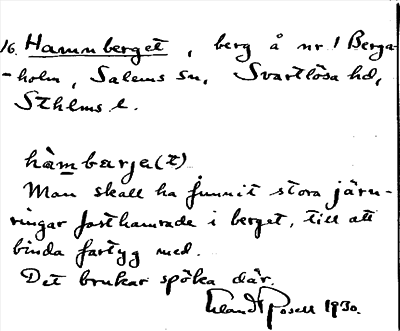 16. Hamnberget, berg å nr 1 Berga-
-holm, Salems sn, Svartlösa hd,
Sthlms l.
hàmbærje(t)
Man skall ha funnit stora järn-
ringar fasthamrade i berget, till att
binda fartyg med.
Det brukar spöka där.
Erland Rosell 1930.